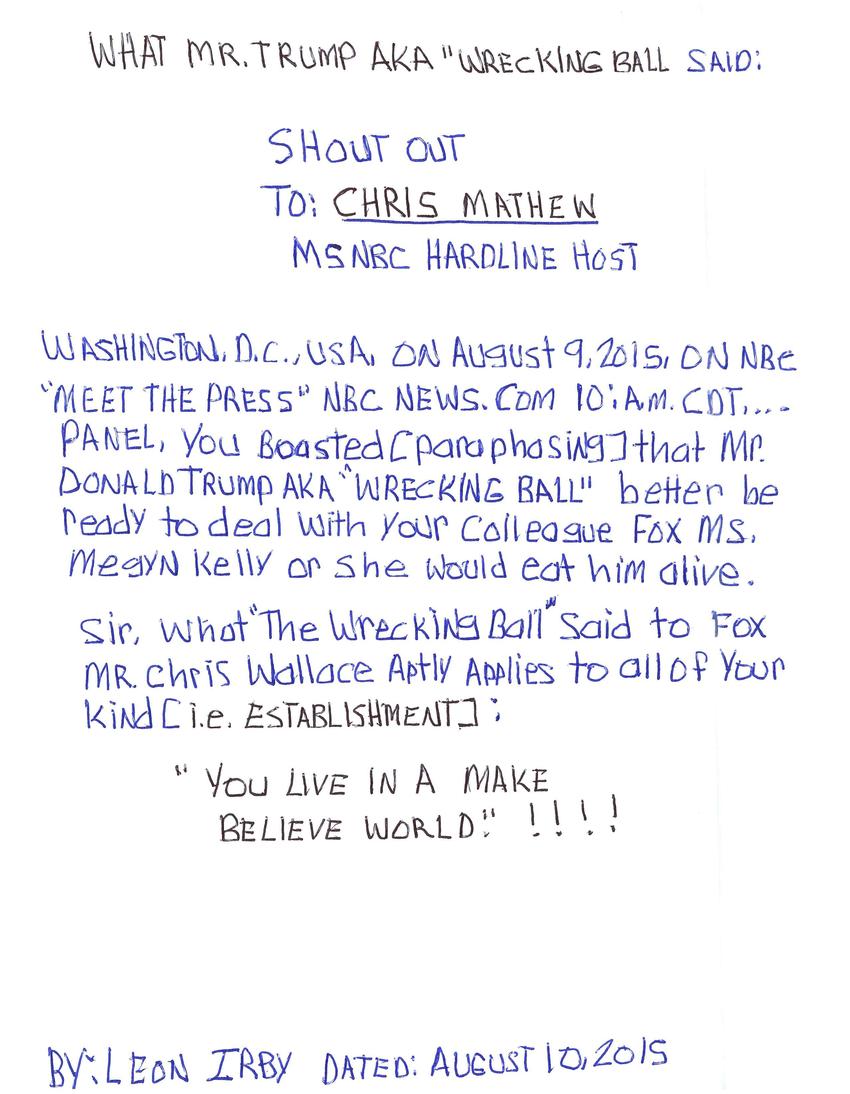 WHAT MR. TRUMP AKA "WRECKING BALL SAID:
SHOUT OUT
TO: CHRIS MATHEW
MSNBC HARDLINE HOST
WASHINGTON, D.C., USA, ON AUgUSt 9, 2015, ON NBC
"MEET THE PRESS" NBC NEWS.COM 10:A.M. CDT,...
PANEL, YOU Boasted [paraphasiNg] that Mr.
DONALD TRUMP AKA "WRECKING BALL" better be
ready to deal with your Colleague FOX MS.
MegyN Kelly or she would eat him alive.
Sir, what "The Wrecking Ball" Said to FOX
MR. Chris Wallace Aptly Applies to all of Your
KiNd [i.e. ESTABLISHMENT]:
"YOU LIVE IN A MAKE
BELIEVE WORLD." !!!!
BY: LEON IRBY DATED: AUGUST 10, 2015